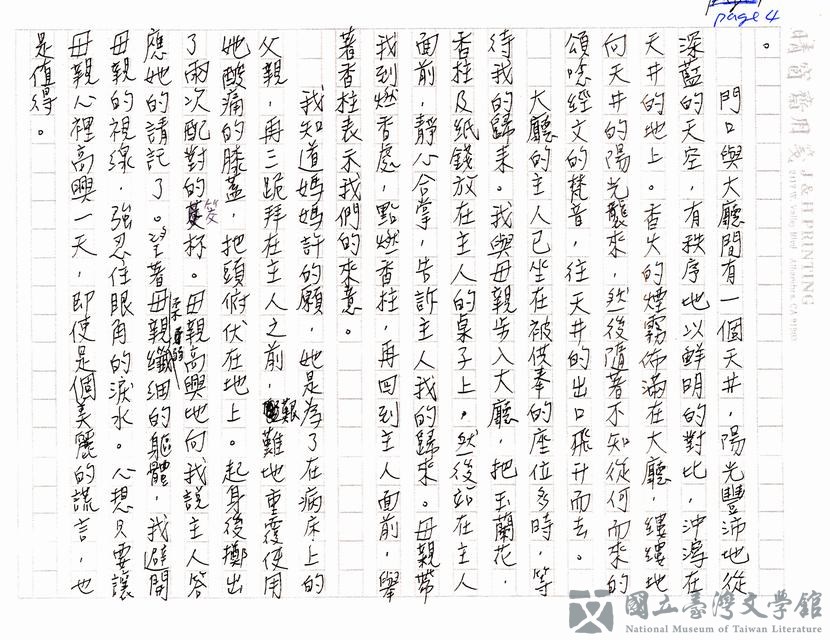 page 4
晴窗齋用箋 J & H PRINTING
。
門口與大廳間有一個天井，陽光豐沛地從
深藍的天空，有秩序地以鮮明的對比，沖瀉在
天井的地上。香火的煙霧佈滿在大廳，縷縷地
向天井的陽光襲來，然後隨著不知從何而來的
頌唸經文的梵音，往天井的出口飛升而去。
大廳的主人已坐在被供奉的座位多時，等
待我的歸來。我與母親步入大廳，把玉蘭花，
香柱及紙錢放在主人的桌子上，然後站在主人
面前，靜心合掌，告訴主人我的歸來。母親帶
我到燃香處，點燃香柱，再回到主人面前，舉
著香柱表示我們的來意。
我知道媽媽許的願，她是為了在病床上的
父親，再三跪拜在主人之前，艱難地重覆使用
她酸痛的膝蓋，把頭俯伏在地上。起身後擲出
了兩次配對的筊杯。母親高興地向我說主人答
應她的請託了。望著母親柔弱的纖細的軀體，我避開
母親的視線，強忍住眼角的淚水。心想只要讓
母親心裡高興一天，即使是個美麗的謊言，也
是值得。
國立臺灣文學館
National Museum of Taiwan Literature